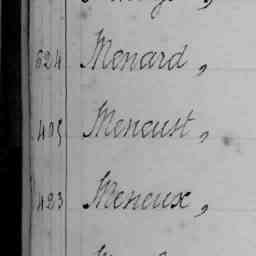 624 Menard ,
495 Meneust ,
423 Meneux ,